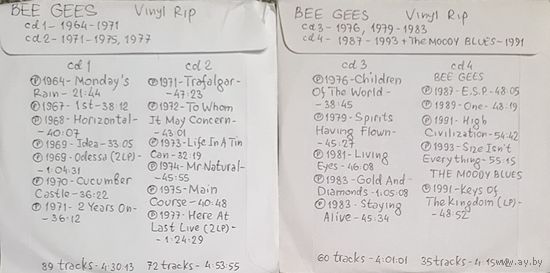 BEE GEES Vinyl Rip
cd1 - 1964-1971
cd2 - 1971-1975, 1977
cd1
℗1964-Monday's
Rain - 21:44
℗1967- 1st-38:12
℗1968-Horizontal-
-40:07
℗1969-Idea-33:05
℗1969-Odessa (2LP)-
-1:04:31
℗1970-Cucumber
Castle-36:22
℗1971-2 Years On-
-36:12
89 tracks-4:30:13
cd2
℗1971-Trafalgar-
-47:23
℗1972-To Whom
It May Concern-
-43:01
℗1973-Life In A Tin
Can-32:19
℗1974-Mr Natural-
-45:55
℗1975-Main
Course-40:48
℗1977-Here At
Last Live (2LP)-
-1:24:29
72 tracks-4:53:55
BEE GEES Vinyl Rip
cd3-1976, 1979-1983
cd4-1987-1993+The MOODY BLUES-1991
cd3
℗1976-Children
Of The World-
-38:45
℗1979-Spirits
Having Flown-
-45:27
℗1981-Living
Eyes-46:08
℗1983-Gold And
Diamonds-1:05:08
℗1983-Staying
Alive-45:34
60 tracks-4:01:01
cd4
BEE GEES
℗1987-E.S.P-48:05
℗1989-One-48:19
℗1991-High
Civilization-54:42
℗1993-Size Isn't
Everything-55:15
THE MOODY BLUES
℗1991-Keys Of
The Kingdom (LP)-
-48:52
35 tracks-4:15
www.ay.by